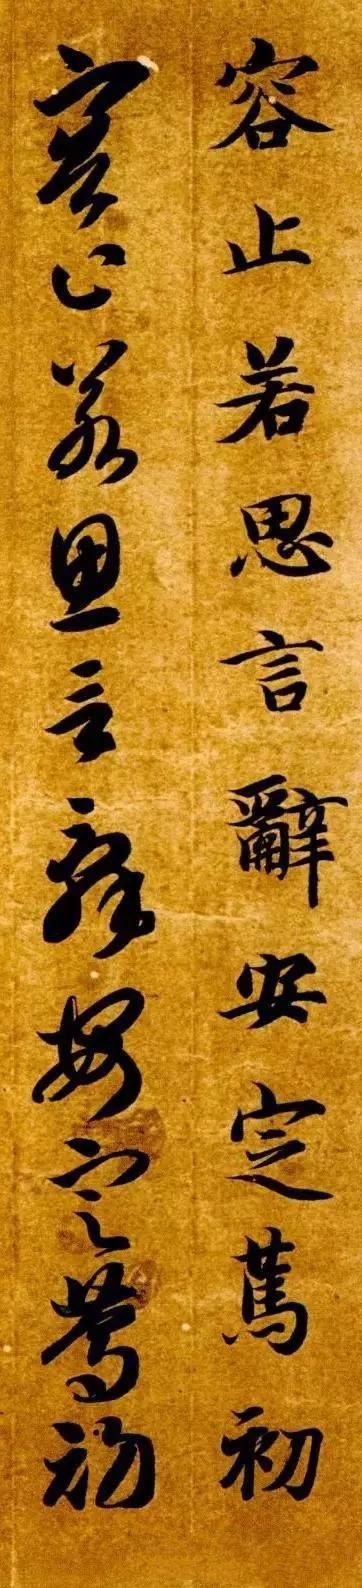 容止若思言辭安定篤初
容止若思言辭安定篤初